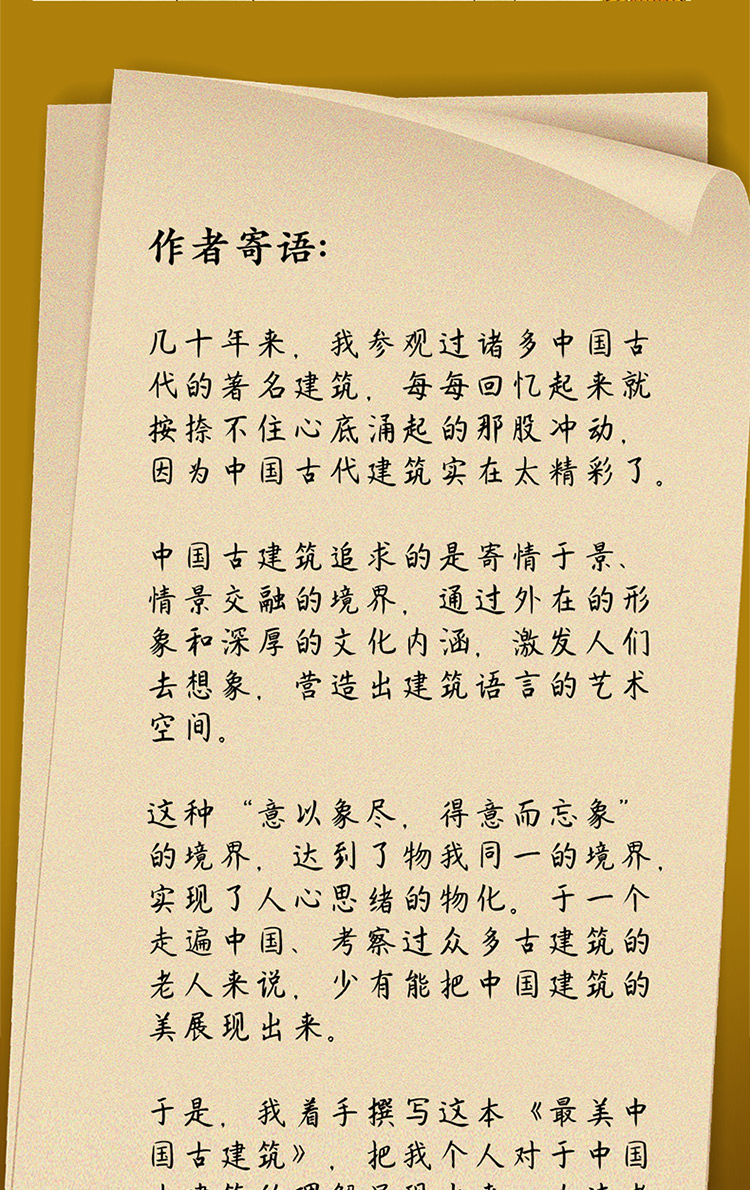 作者寄语:
几十年来，我参观过诸多中国古
代的著名建筑，每每回忆起来就
按捺不住心底涌起的那股冲动，
因为中国古代建筑实在太精彩了。
中国古建筑追求的是寄情于景、
情景交融的境界，通过外在的形
象和深厚的文化内涵，激发人们
去想象，营造出建筑语言的艺术
空间。
这种“意以象尽，得意而忘象”
的境界，达到了物我同一的境界，
实现了人心思绪的物化。于一个
走遍中国、考察过众多古建筑的
老人来说，少有能把中国建筑的
美展现出来。
于是，我着手撰写这本《最美中
国古建筑》，把我个人对于中国